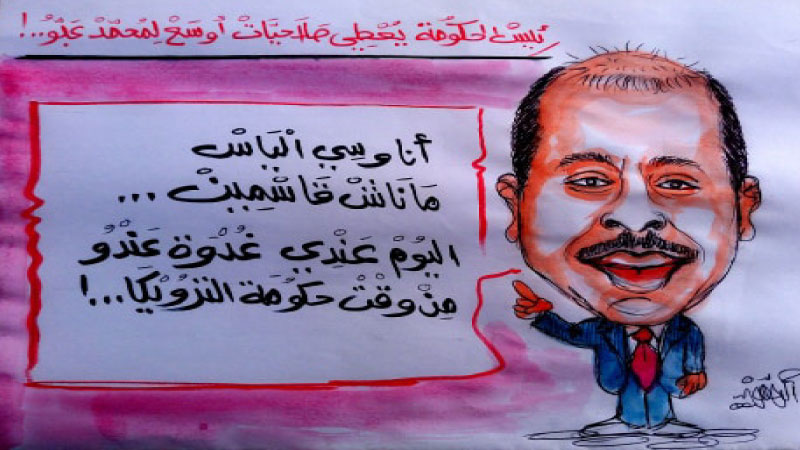 رئيس الحكومة يُعْطِي صَلاحيَّاتْ أوسَعْ لِمُحمَّدْ عَبُّو..!
أنا وسِي الْيَاسْ
مَاناشْ قَاسْمِينْ...
اليُومْ عَنْدِي غُدْوَة عَنْدُو
مِنْ وقْتْ حكُومَة الترُويْكَا...!